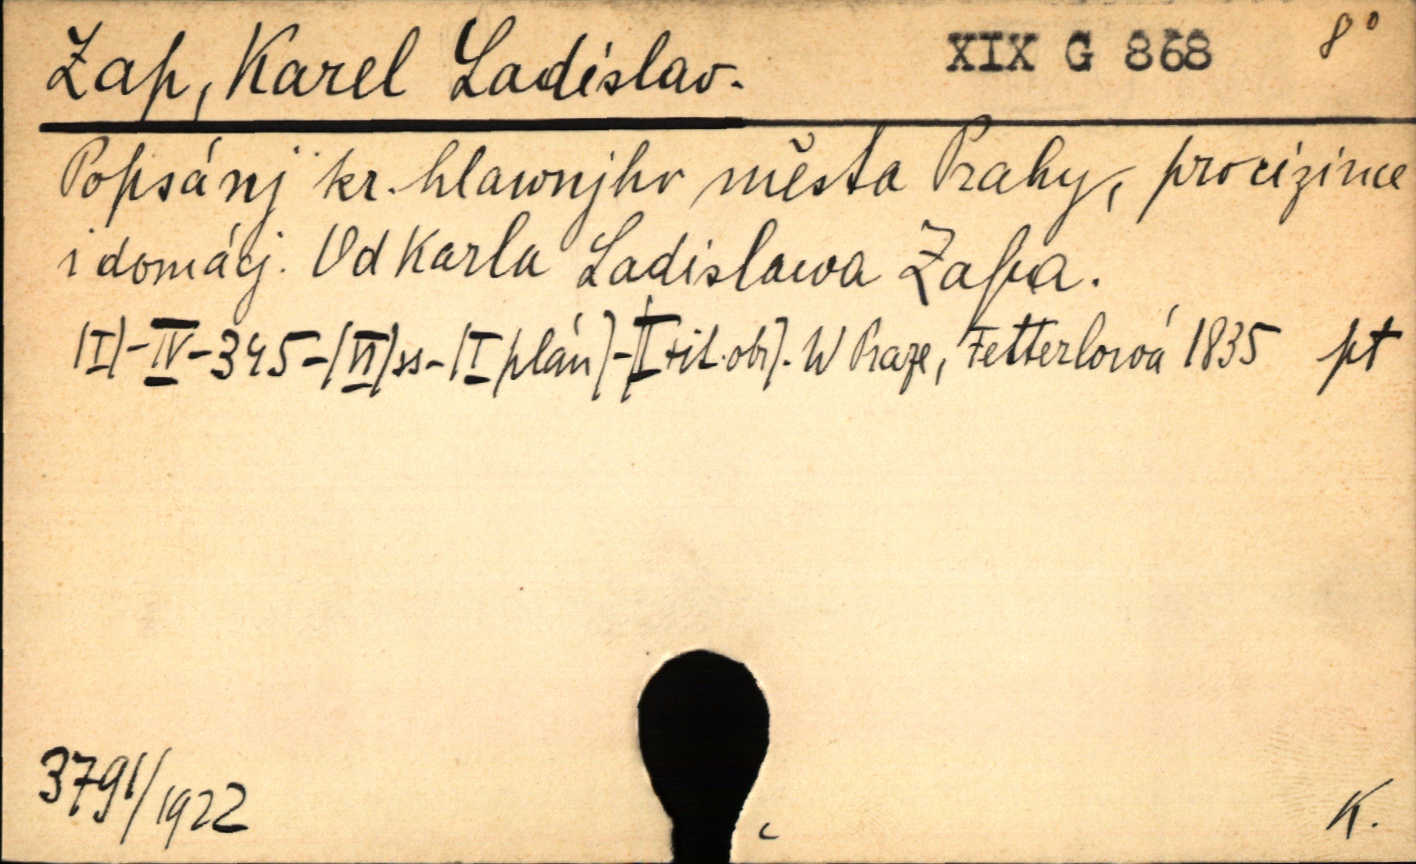 Zap, Karel Ladislav. XIX G 868 8°
Popsánj kr. hlawnjho města Prahy, pro cizince
i domácj. Od Karla Ladislawa Zapa.
[I]-IV-345-[VI]ss-[I plán]-[I tit. obr]. W Praze, Fetterlowá 1835 pt
3791/1922
K.